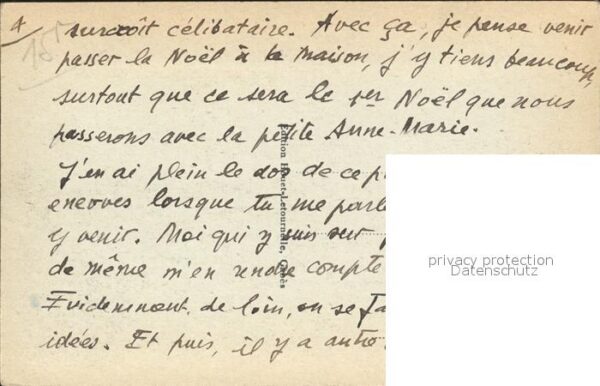 4
surcroît célibataire. Avec ça, je pense venir
passer la Noël à la maison, j'y tiens beaucoup,
surtout que ce sera le 1er Noël que nous
passerons avec la petite Anne-Marie.
J'en ai plein le dos de ce p
enerves lorsque tu me parle
y venir. Moi qui y suis sur
de même m'en rendre compte
Evidemment, de loin, on se fa
idées. Et puis, il y a autre
Edition Houet-Letournelle, Gabès
privacy protection
Datenschutz